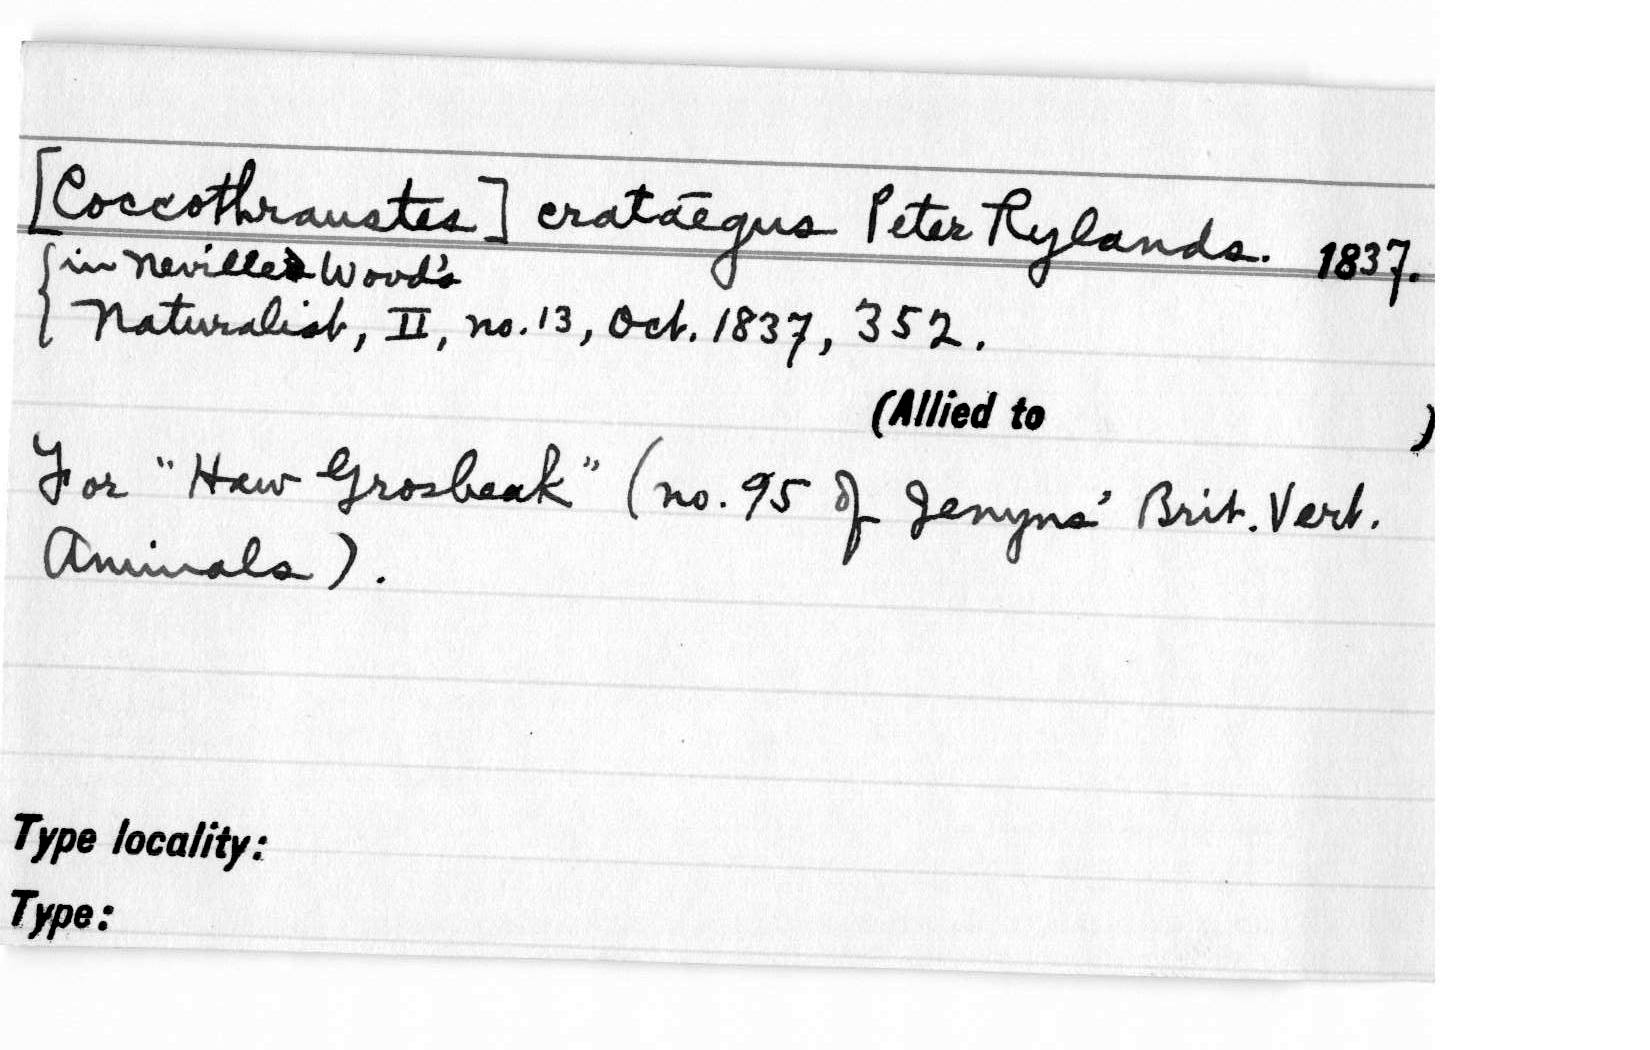 [Coccothraustes] cratāegus Peter Rylands. 1837.
in Neville Wood's
Naturalist, II, no. 13, Oct. 1837, 352.
(Allied to )
For "Haw Grosbeak" (no. 95 of Jenyns' Brit. Vert.
Animals).
Type locality:
Type: